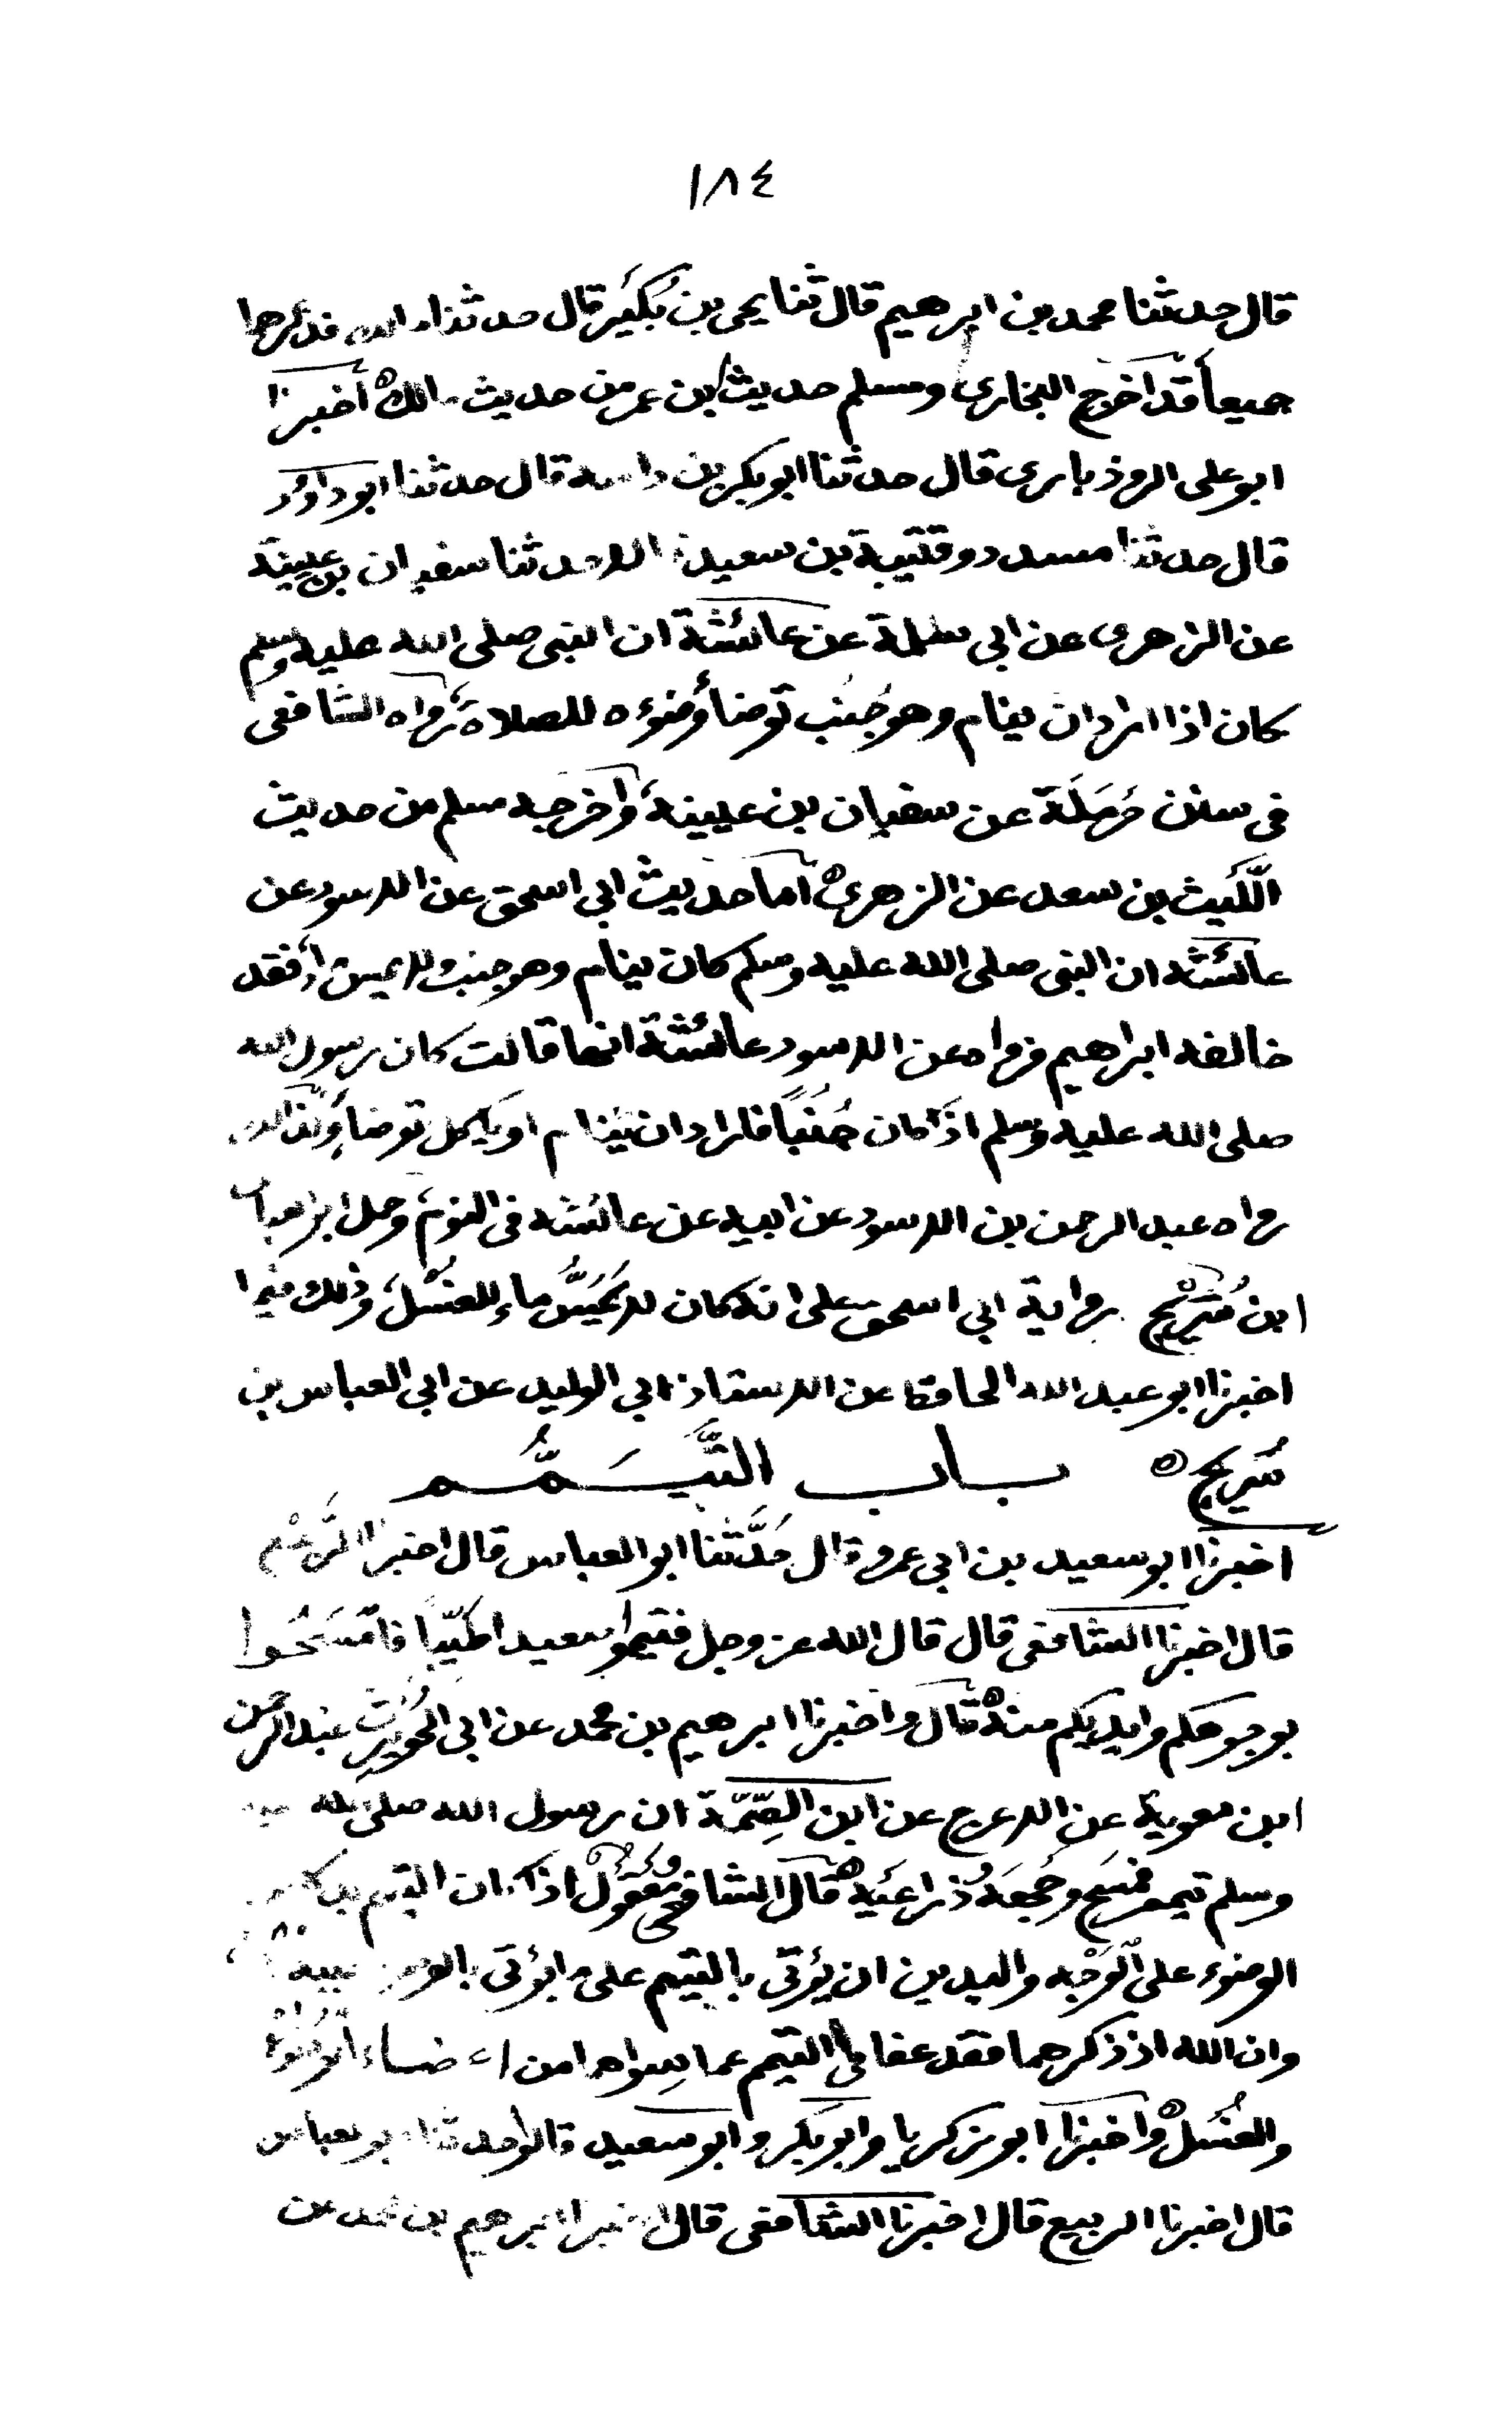 ١٨٤
قال حدثنا محمد بن ابرهيم قال ثنا يحيى بن بُكَيْر قال حدثنا فذكرهما
جميعاً قد اخرج البخارى ومسلم حديث ابن عمر من حديث مالك ه اخبرنا
ابو على الروذبارى قال حدثنا ابو بكر بن داسه قال حدثنا ابو داود
قال حدثنا مسدد وقتيبة بن سعيد قالا حدثنا سفيان بن عيينة
عن الزهرى عن ابى سلمة عن عائشة ان النبى صلى الله عليه وسلم
كان اذا اراد ان ينام وهو جُنُب توضأ وُضوءه للصلاة، رواه الشافعى
فى سنن حَرمَلَة عن سفيان بن عيينة، واخرجه مسلم من حديث
اللَّيث بن سعد عن الزهرى ه اما حديث ابى اسحق عن الاسود عن
عائشه ان النبى صلى الله عليه وسلم كان ينام وهو جنب ولا يمس ماء فقد
خالفه ابراهيم فرواه عن الاسود عائشة انها قالت كان رسول الله
صلى الله عليه وسلم اذا كان جُنُباً فاراد ان ينام او ياكل توضا، وكذلك
رواه عبد الرحمن بن الاسود عن ابيه عن عائشه فى النوم، وحمل ابو العباس
ابن سُرَيْج رواية ابى اسحق على انه كان لا يَمَسُّ ماء للغُسْل، وذلك فيما
اخبرنا ابو عبد الله الحافظ عن الاستاذ ابى الوليد عن ابى العباس بن
سُريج ه باب التَّيَمُّم
اخبرنا ابو سعيد بن ابى عمرو قال حَدَّثنا ابو العباس قال اخبرنا الرَّبيْع
قال اخبرنا الشافعى قال قال الله عز وجل فتيمموا صعيدا طيّباً فامْسَحُوا
بوجوهكم وايديكم منه ه قال واخبرنا ابرهيم بن محمد عن ابى الحُوَيْرِث عبد الرحمن
ابن معوية عن الاعرج عن ابن الصِّمّة ان رسول الله صلى الله عليه
وسلم تيمم فمسَح وَجهَهُ وذراعَيْه ه قال الشافعى ومعقول اذا كان التيمم بدلا من
الوضوء على الوَجْه واليدين ان يُؤتى بالتيمم على ما يؤتى بالوضوء عليه
وان الله اذ ذكرهما فقد عفا فى التيمم عما سِواهما من اعضاء الوُضُوْء
والغُسْل ه واخبرنا ابو زكريا وابو بكر وابو سعيد قالوا حدثنا ابو العباس
قال اخبرنا الربيع قال اخبرنا الشافعى قال اخبرنا ابرهيم بن محمد عن